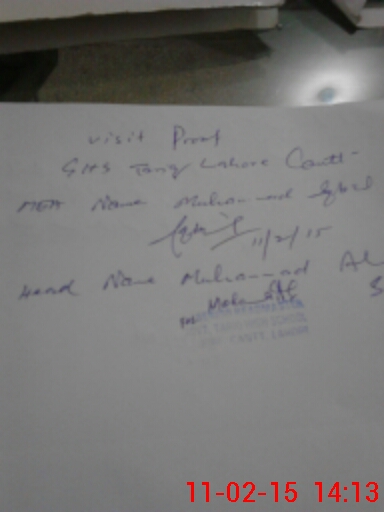 Visit Proof
GHS Tariq Lahore Cantt-
MEA Name Muhammad Iqbal
11/2/15
Head Name Muhammad Al
HEADMASTER
HIGH SCHOOL
CANTT LAHORE
11-02-15 14:13